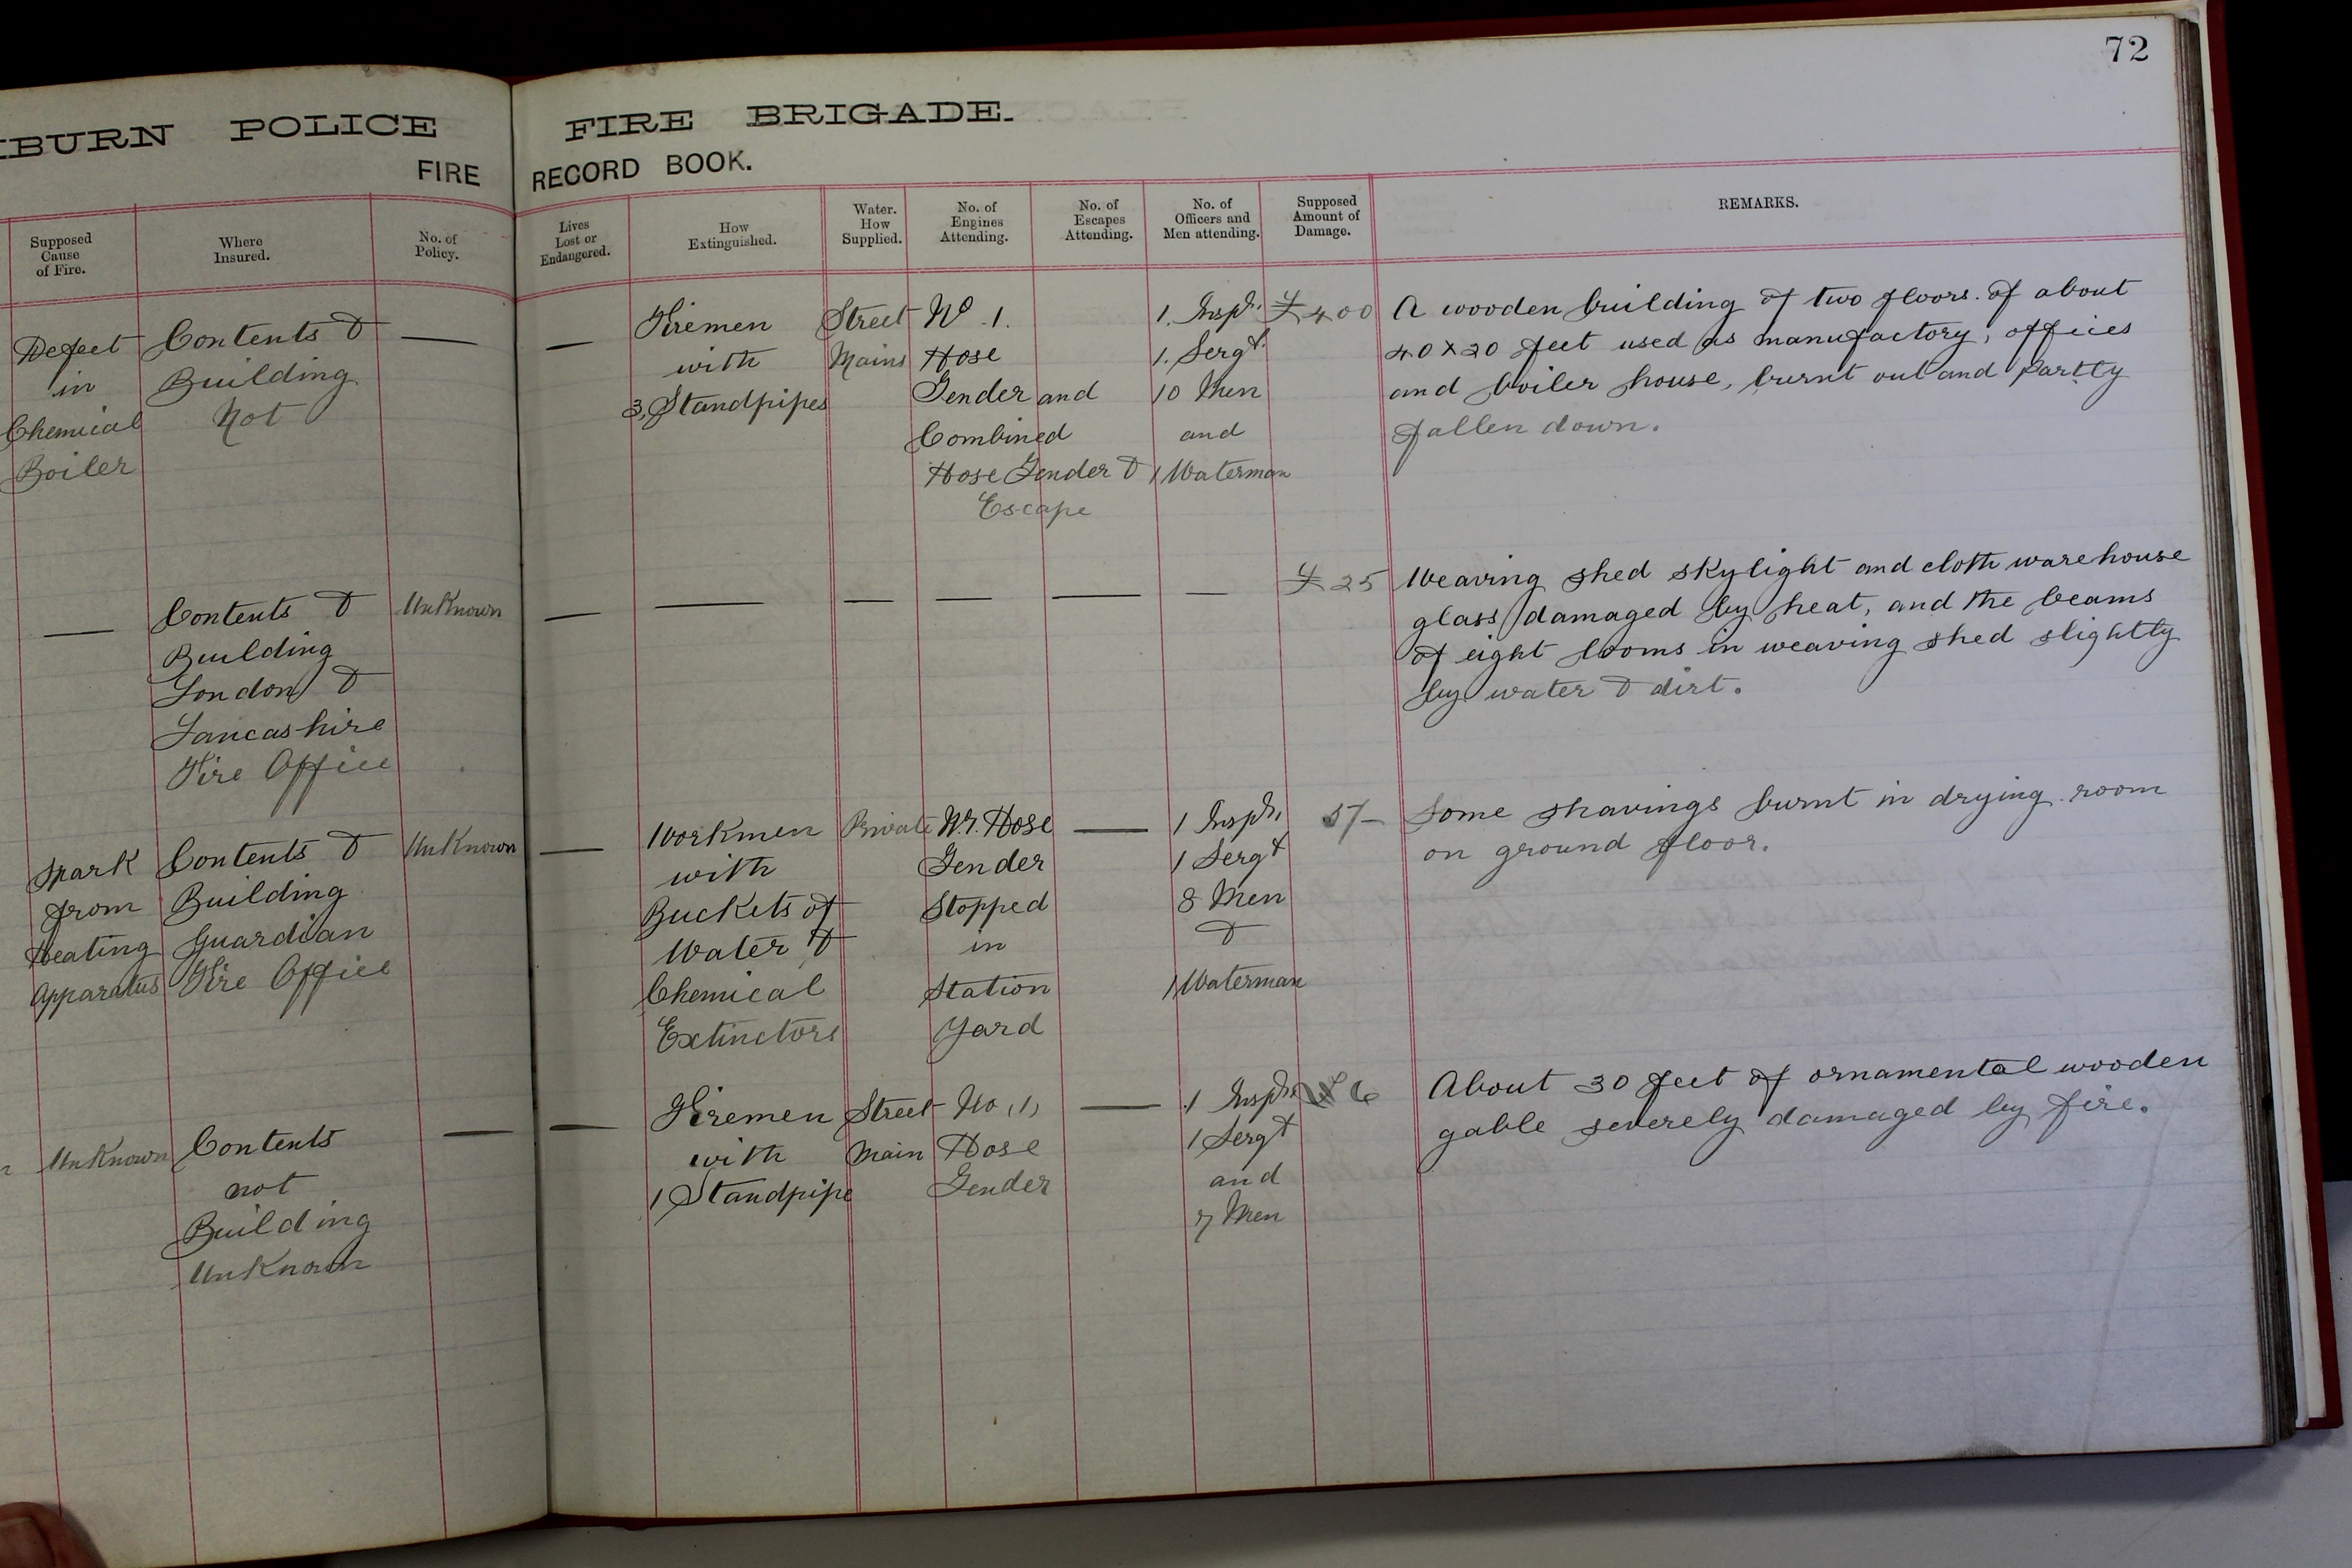 72
BURN POLICE FIRE BRIGADE.
FIRE RECORD BOOK.
Supposed Cause of Fire.
Where Insured.
No. of Policy.
Lives Lost or Endangered.
How Extinguished.
Water. How Supplied.
No. of Engines Attending.
No. of Escapes Attending.
No. of Officers and Men attending.
Supposed Amount of Damage.
REMARKS.
Defect
in
Chemical
Boiler
Contents &
Building
Not
—
—
Firemen
with
3, Standpipes
Street
Mains
No 1.
Hose
Tender and
Combined
Hose Tender &
Escape
1. Inspr.
1. Sergt.
10 Men
and
1 Waterman
£400
A wooden building of two floors. of about
40 x 20 feet used as manufactory, offices
and boiler house, burnt out and partly
fallen down.
—
Contents &
Building
London &
Lancashire
Fire Office
UnKnown
—
—
—
—
—
—
£25
Weaving shed skylight and cloth warehouse
glass damaged by heat, and the beams
of eight looms in weaving shed slightly
by water & dirt.
Spark
from
Heating
Apparatus
Contents &
Building
Guardian
Fire Office
UnKnown
—
Workmen
with
Buckets of
Water &
Chemical
Extinctors
Private
Hose
Tender
Stopped
in
Station
Yard
—
1 Inspr.
1 Sergt
8 Men
&
1 Waterman
5/-
Some shavings burnt in drying room
on ground floor.
UnKnown
Contents
not
Building
UnKnown
—
—
Firemen
with
1 Standpipe
Street
Main
No (1)
Hose
Tender
—
1 Inspr.
1 Sergt
and
7 Men
6
About 30 feet of ornamental wooden
gable severely damaged by fire.